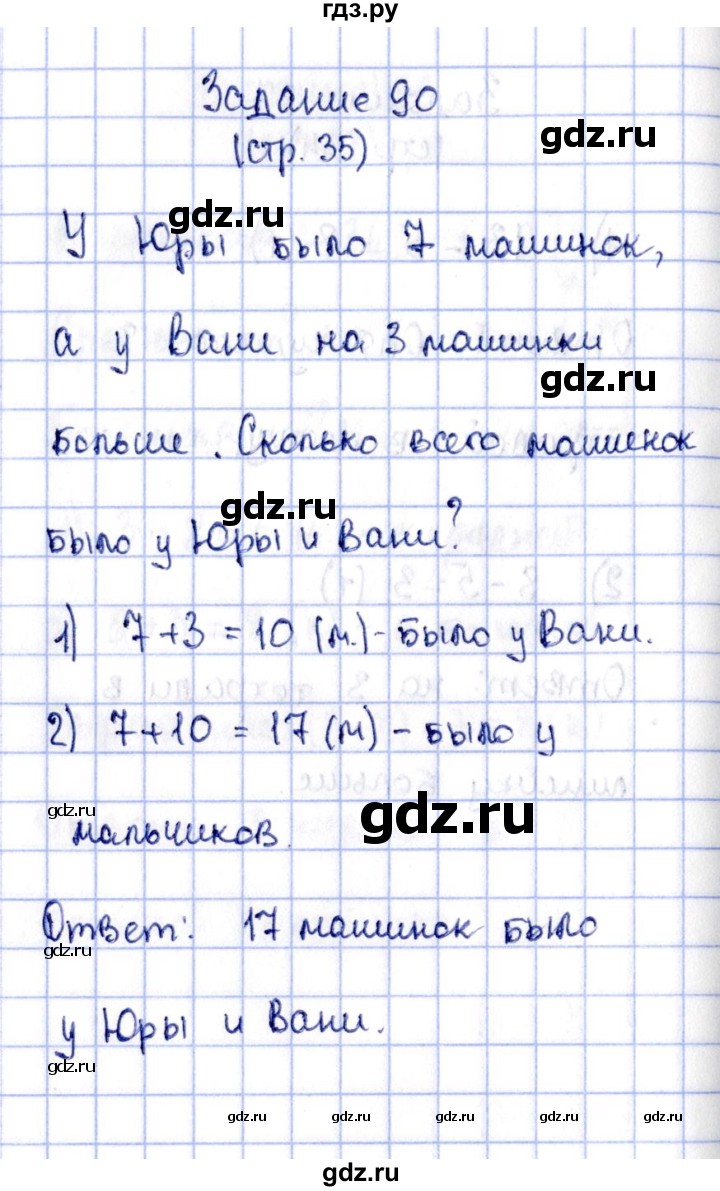 гдз.ру
Задание 90
gdz.ru
(стр. 35)
gdz.ru
У Юры было 7 машинок,
а у Вани на 3 машинки
gdz.ru
больше. Сколько всего машенок
gdz.ru
было у Юры и Вани?
1) 7+3=10 (м.)-было у Вани.
2) 7+10=17 (м) - было у
gdz.ru
gdz.ru
мальчиков.
Ответ: 17 машинок было
gdz.ru
у Юры и Вани.
gdz.ru
gdz.ru gdz.ru gdz.ru gdz.ru gdz.ru
gdz.ru